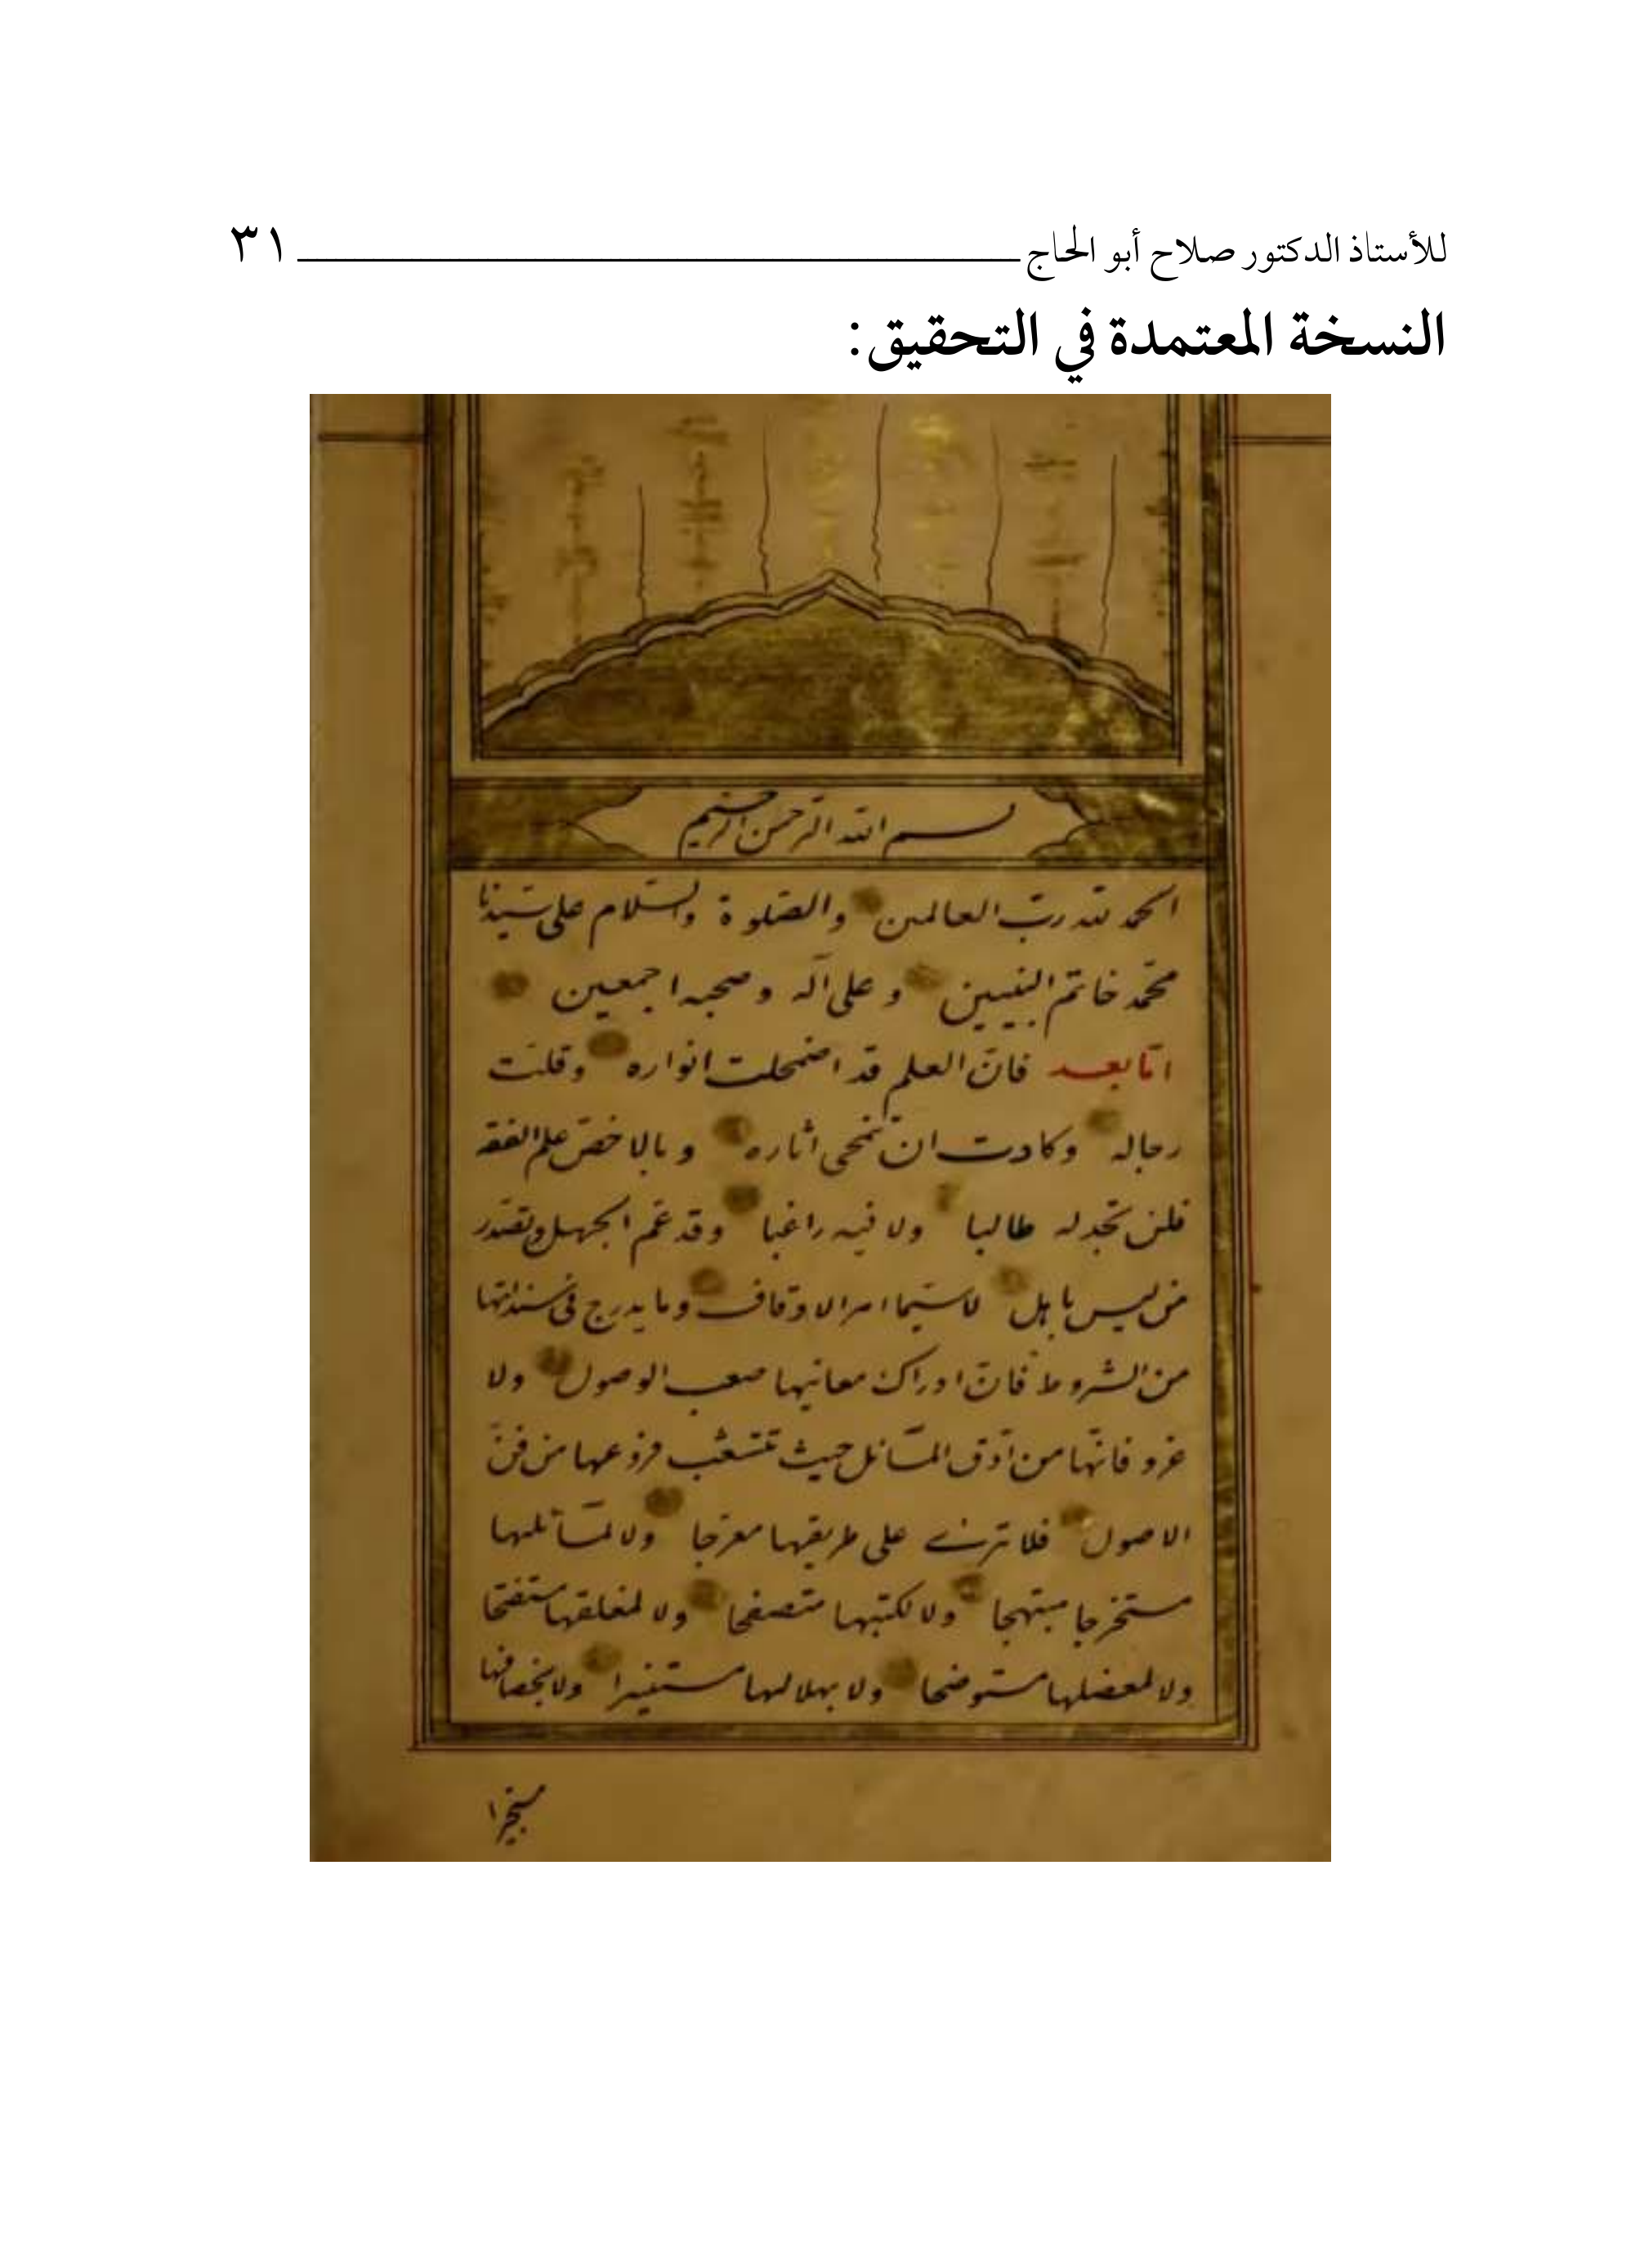 للأستاذ الدكتور صلاح أبو الحاج ٣١
النسخة المعتمدة في التحقيق:
بسم الله الرحمن الرحيم
الحمد لله ربّ العالمين والصّلوة والسّلام على سيّدنا
محمّد خاتم النبيين وعلى آله وصحبه اجمعين
امّا بعد فانّ العلم قد اضمحلت انواره وقلّت
رجاله وكادت ان تنمحى اثاره وبالاخصّ علم الفقه
فلن تجد له طالبا ولا فيه راغبا وقد عمّ الجهل وتصدّر
من ليس باهل لا سيّما امر الاوقاف وما يدرج فى
من الشروط فانّ ادراك معانيها صعب الوصول ولا
غرو فانّها من ادقّ المسائل حيث تتشعّب فروعها من فنّ
الاصول فلا ترى على طريقها معرّجا ولا لمسائلها
مستخرجا مبتهجا ولا لكتبها متصفحا ولا لمغلقها مستفتحا
ولا لمعضلها مستوضحا ولا بهلالها مستنيرا ولا بخصافها